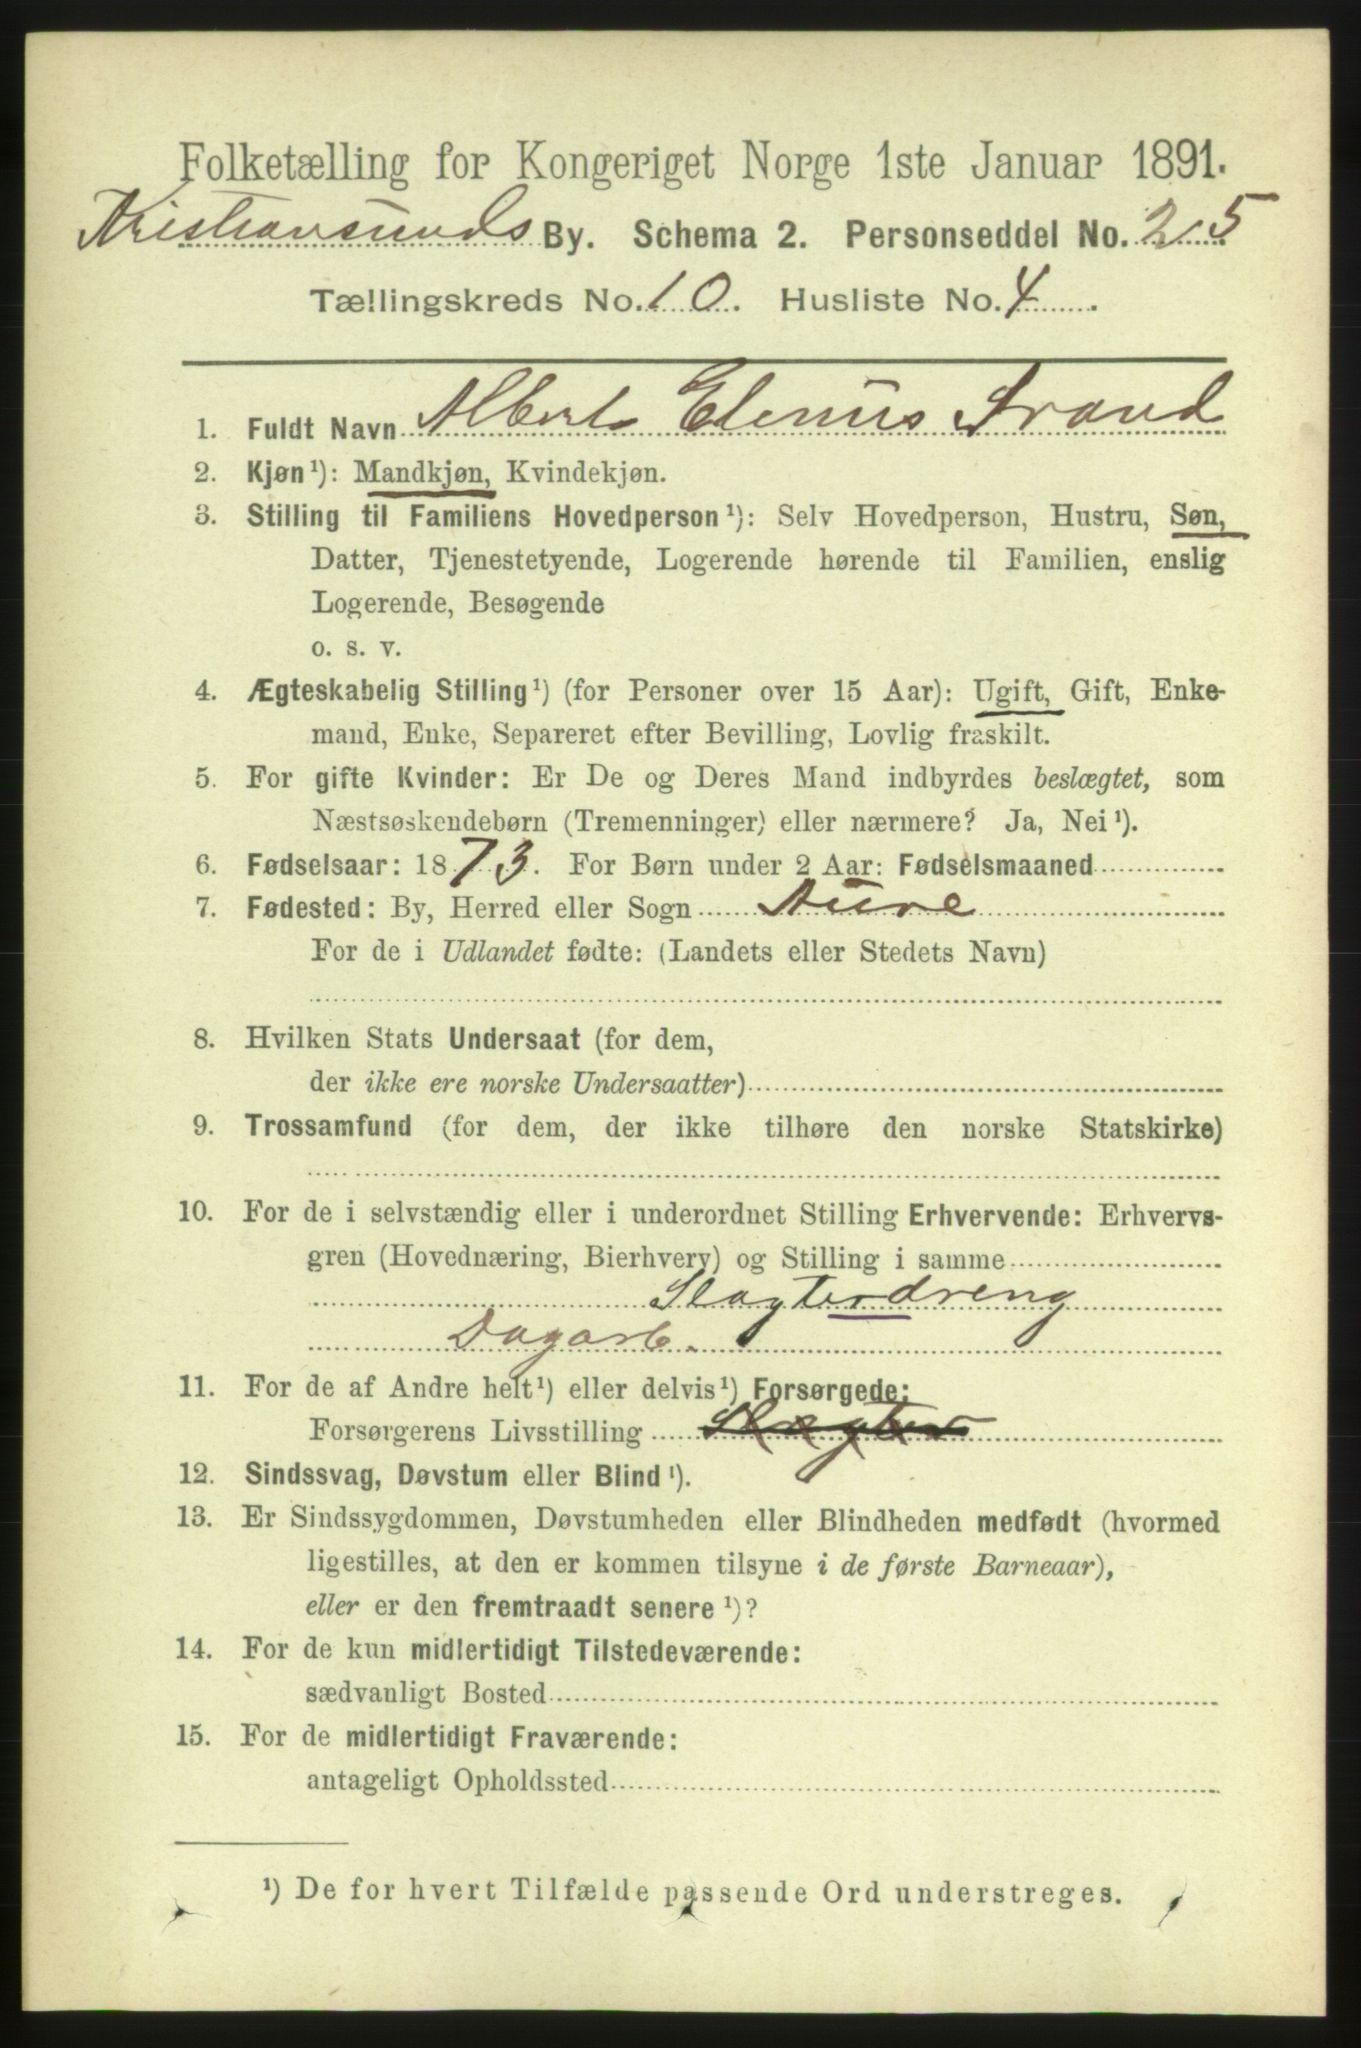 Folketælling for Kongeriget Norge 1ste Januar 1891.
Kristiansunds By. Schema 2. Personseddel No. 25
Tællingskreds No. 10. Husliste No. 4.
1. Fuldt Navn Albert Elenius Strand
2. Kjøn¹): Mandkjøn, Kvindekjøn.
3. Stilling til Familiens Hovedperson¹): Selv Hovedperson, Hustru, Søn,
Datter, Tjenestetyende, Logerende hørende til Familien, enslig
Logerende, Besøgende
o. s. v.
4. Ægteskabelig Stilling¹) (for Personer over 15 Aar): Ugift, Gift, Enke-
mand, Enke, Separeret efter Bevilling, Lovlig fraskilt.
5. For gifte Kvinder: Er De og Deres Mand indbyrdes beslægtet, som
Næstsøskendebørn (Tremenninger) eller nærmere? Ja, Nei¹).
6. Fødselsaar: 1873. For Børn under 2 Aar: Fødselsmaaned
7. Fødested: By, Herred eller Sogn Aure
For de i Udlandet fødte: (Landets eller Stedets Navn)
8. Hvilken Stats Undersaat (for dem,
der ikke ere norske Undersaatter)
9. Trossamfund (for dem, der ikke tilhøre den norske Statskirke)
10. For de i selvstændig eller i underordnet Stilling Erhvervende: Erhvervs-
gren (Hovednæring, Bierhverv) og Stilling i samme
Slagterdreng
Dagarb.
11. For de af Andre helt¹) eller delvis¹) Forsørgede:
Forsørgerens Livsstilling Slagter
12. Sindssvag, Døvstum eller Blind¹).
13. Er Sindssygdommen, Døvstumheden eller Blindheden medfødt (hvormed
ligestilles, at den er kommen tilsyne i de første Barneaar),
eller er den fremtraadt senere¹)?
14. For de kun midlertidigt Tilstedeværende:
sædvanligt Bosted
15. For de midlertidigt Fraværende:
antageligt Opholdssted
¹) De for hvert Tilfælde passende Ord understreges.